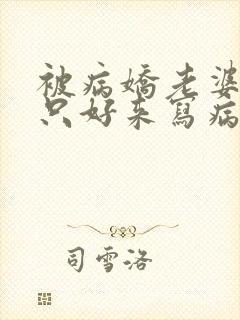 被病嬌老婆
只好来寫病
司雪洛